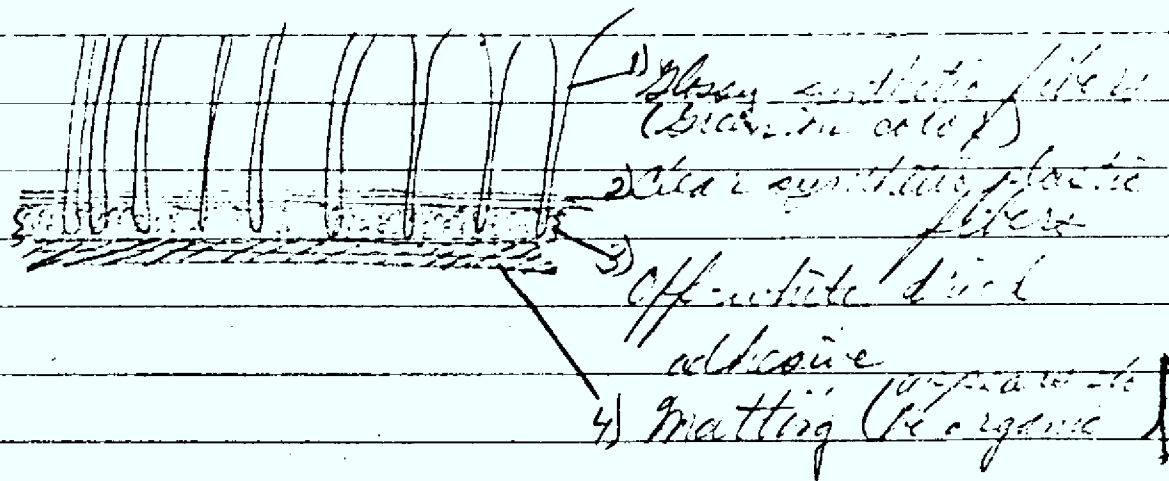 1) Glossy synthetic fibers
(Green in color)
2) Clear synthetic plastic
fibers
3)
Off-white dried
adhesive
4) Matting (appears to
be organic)